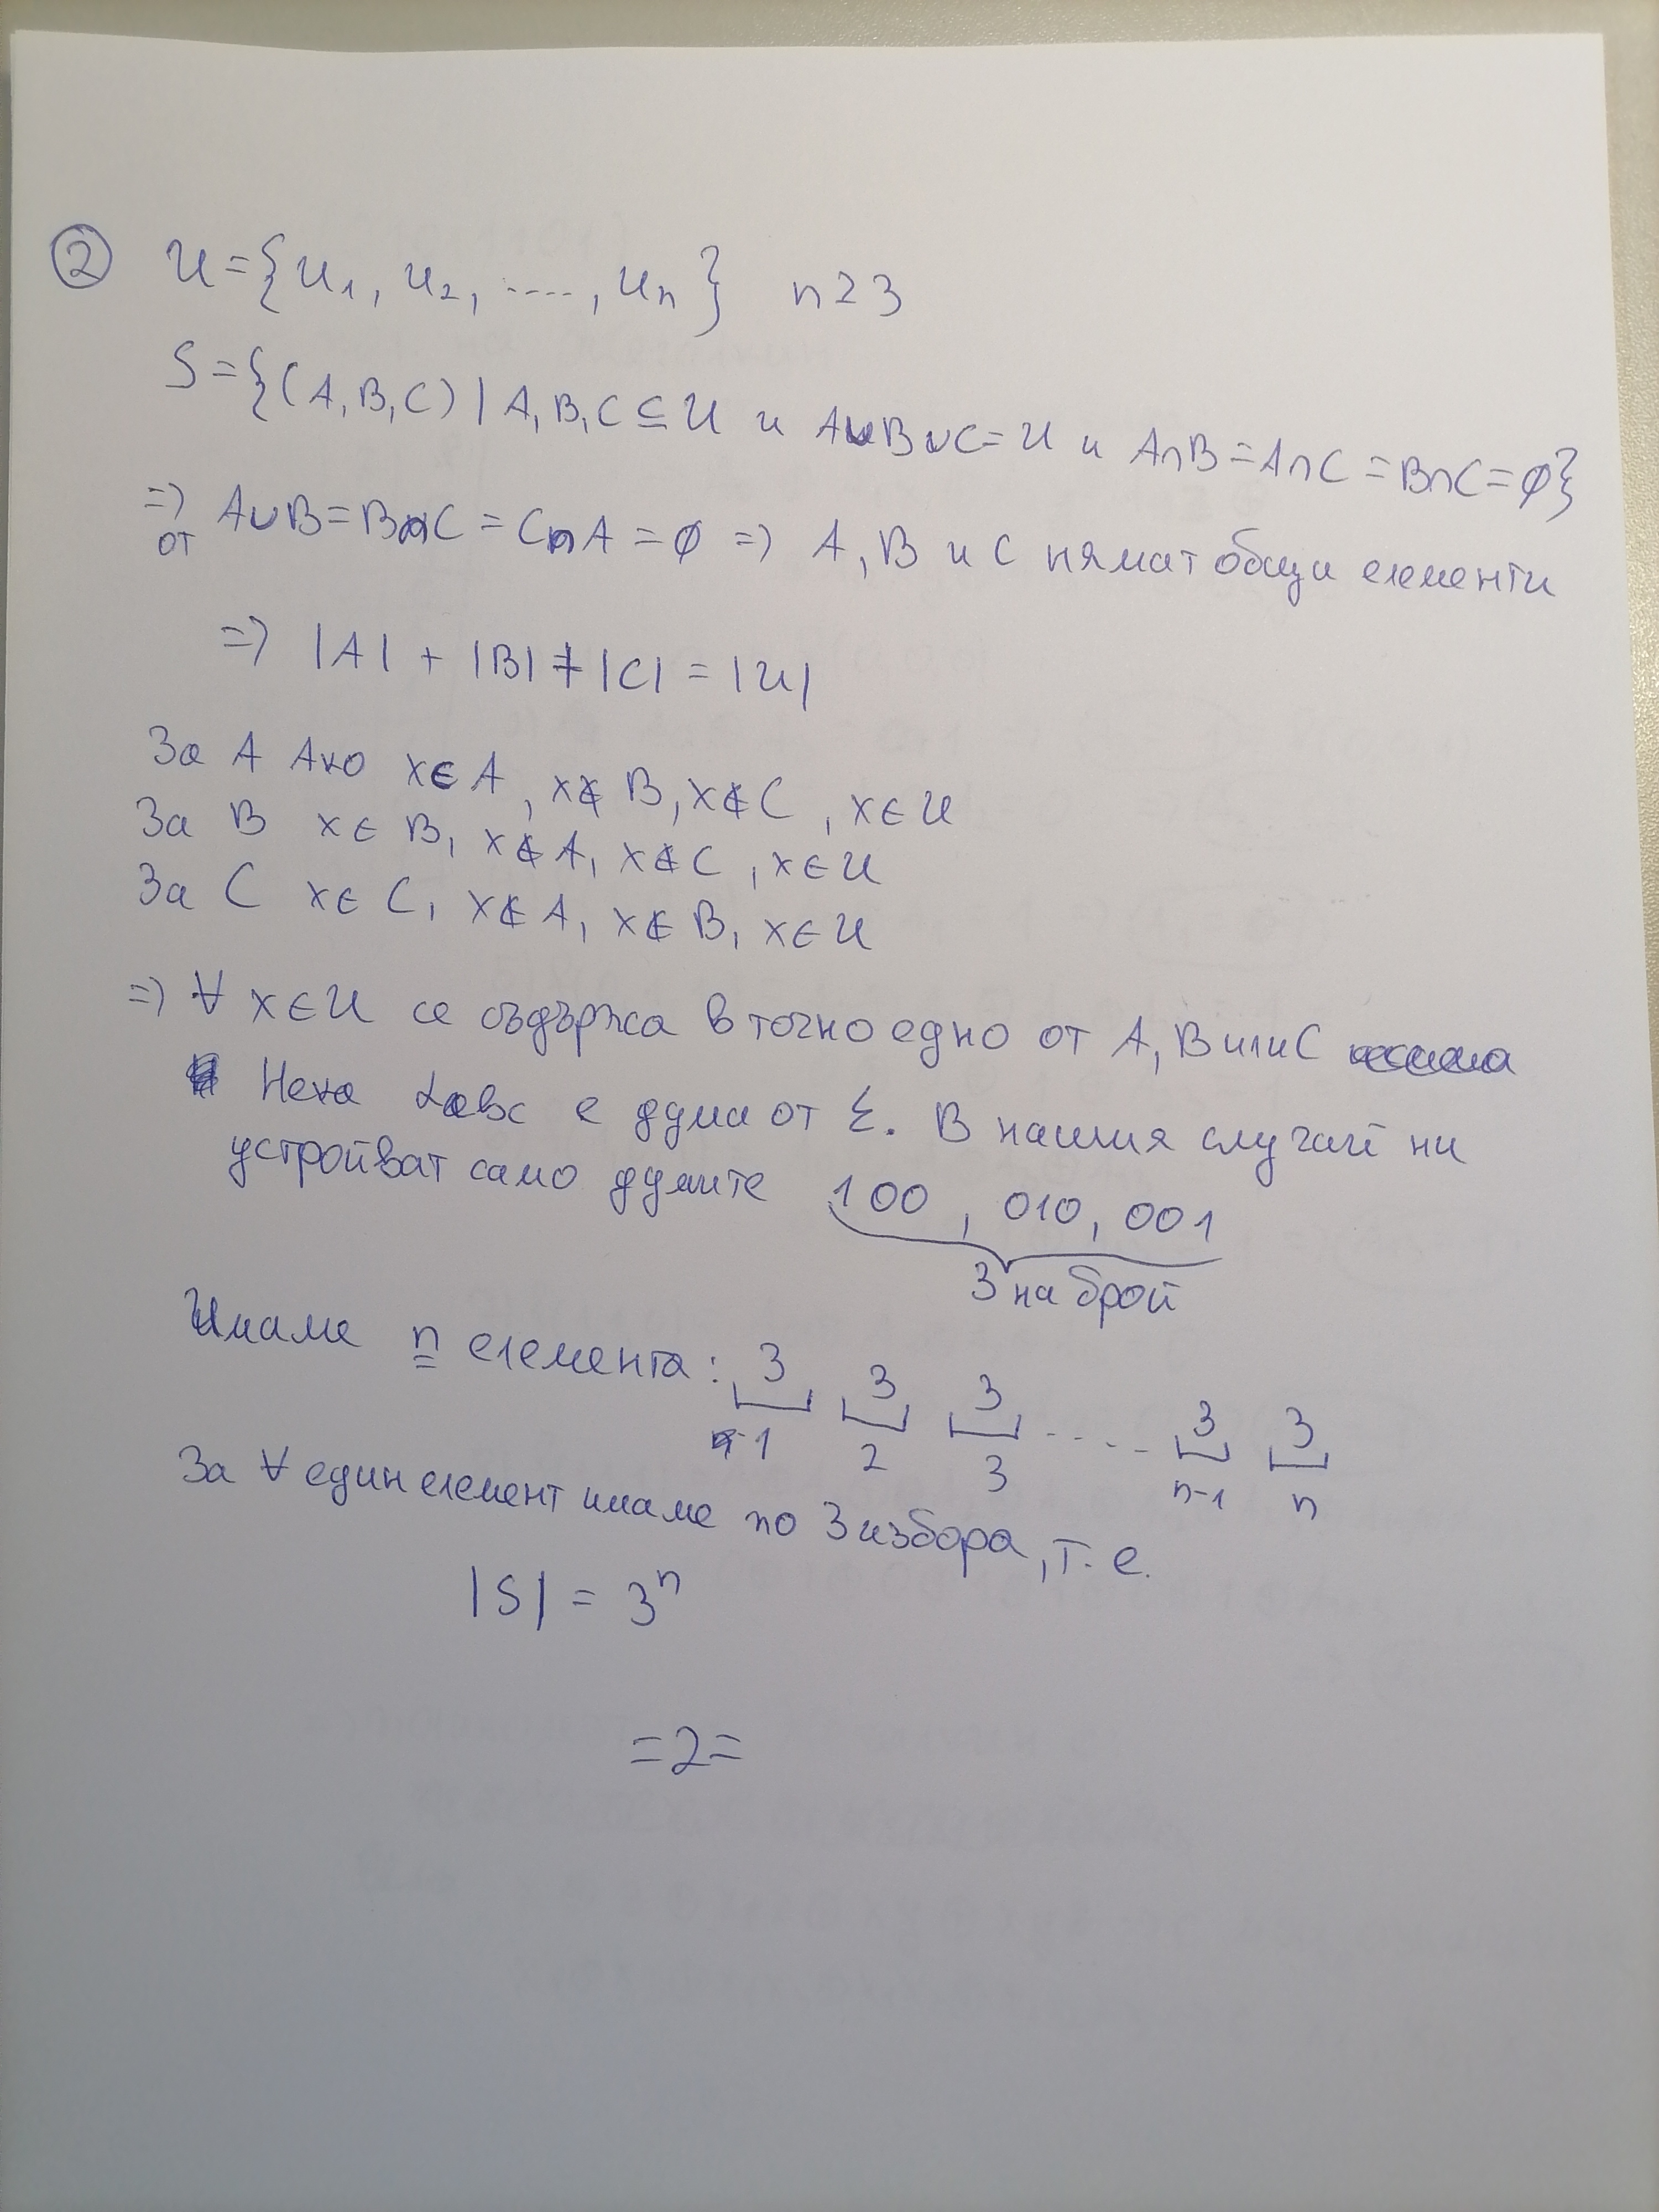 ② U={u₁, u₂, ...., uₙ} n≥3
S={(A,B,C) | A,B,C ⊆ U и A∪B∪C=U и A∩B=A∩C=B∩C=∅}
=> от A∪B=B∩C=C∩A=∅ => A, B и C нямат общи елементи
=> |A| + |B| + |C| = |U|
За A Ако x∈A, x∉B, x∉C, x∈U
За B x∈B, x∉A, x∉C, x∈U
За C x∈C, x∉A, x∉B, x∈U
=> ∀ x∈U се съдържа в точно едно от A, B или C
Нека αABC е дума от Σ. В нашия случай ни
устройват само думите 100, 010, 001
3 на брой
Имаме n елемента: 3 3 3 .... 3 3
1 2 3 n-1 n
За ∀ един елемент имаме по 3 избора, т.е.
|S| = 3ⁿ
=2=